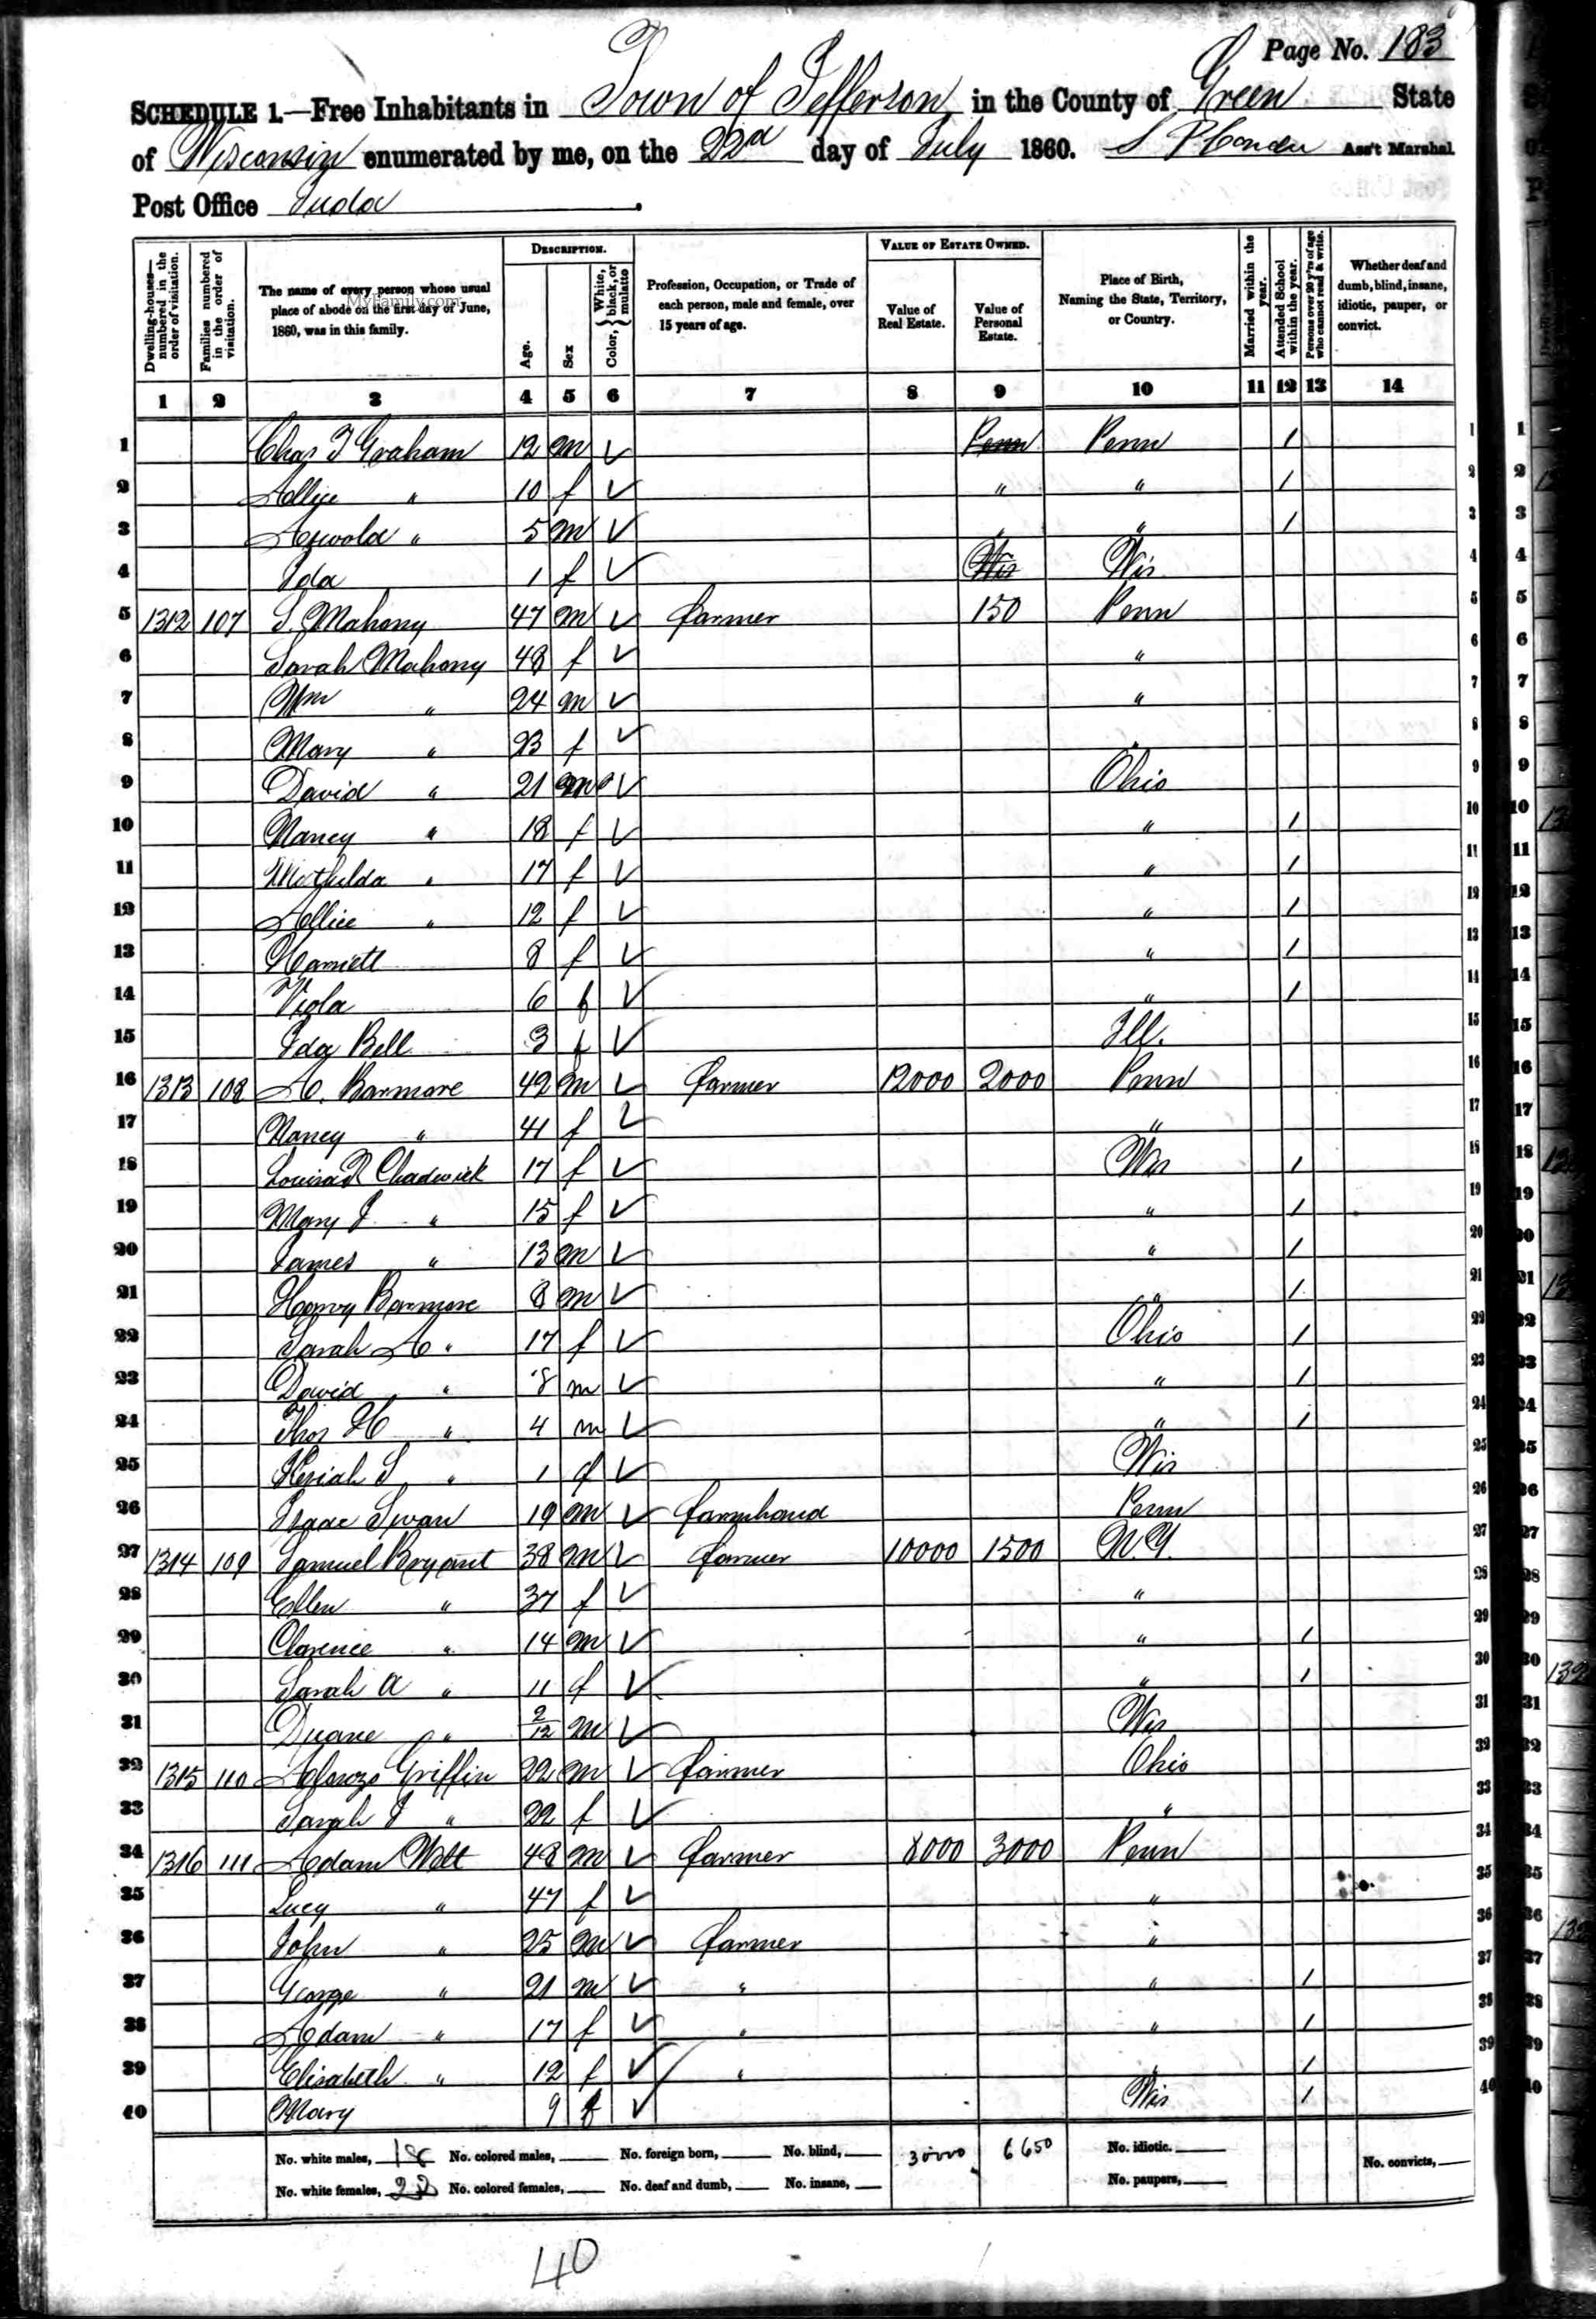 Page No. 183
SCHEDULE 1.—Free Inhabitants in Town of Jefferson in the County of Green State
of Wisconsin enumerated by me, on the 22d day of July 1860. Ass't Marshal
Post Office Juda
Dwelling-houses—numbered in the order of visitation.
Families numbered in the order of visitation.
The name of every person whose usual place of abode on the first day of June, 1860, was in this family.
MyFamily.com
DESCRIPTION.
Age.
Sex
Color, { White, black, or mulatto
Profession, Occupation, or Trade of each person, male and female, over 15 years of age.
VALUE OF ESTATE OWNED.
Value of Real Estate.
Value of Personal Estate.
Place of Birth, Naming the State, Territory, or Country.
Married within the year.
Attended School within the year.
Persons over 20 y'rs of age who cannot read & write.
Whether deaf and dumb, blind, insane, idiotic, pauper, or convict.
1 2 3 4 5 6 7 8 9 10 11 12 13 14
1 Chas T Graham 12 m ✓ Penn Penn / 1
2 Allice " 10 f ✓ " " / 2
3 " 5 m ✓ " / 3
4 Ida 1 f ✓ Wis Wis 4
5 1312 107 S. Mahony 47 m ✓ farmer 150 Penn 5
6 Sarah Mahony 48 f ✓ " 6
7 Wm " 24 m ✓ " 7
8 Mary " 23 f ✓ " 8
9 David " 21 m ✓ Ohio 9
10 Nancy " 18 f ✓ " / 10
11 Mathilda " 17 f ✓ " / 11
12 Allice " 12 f ✓ " / 12
13 Harriett 8 f ✓ " / 13
14 Viola 6 f ✓ " / 14
15 Ida Bell 3 f ✓ Ill. 15
16 1313 108 A. Barmore 42 m ✓ farmer 12000 2000 Penn 16
17 Nancy " 41 f ✓ " 17
18 Louisa R Chadwick 17 f ✓ Wis / 18
19 Mary J " 15 f ✓ " / 19
20 James " 13 m ✓ " / 20
21 Harvy Barmore 8 m ✓ " / 21
22 Sarah A " 17 f ✓ Ohio / 22
23 David " 8 m ✓ " / 23
24 Thos H " 4 m ✓ " / 24
25 S " 1 f ✓ Wis 25
26 Isaac Swan 19 m ✓ farmhand Penn 26
27 1314 109 Samuel Bryant 38 m ✓ farmer 10000 1500 N.Y. 27
28 Ellen " 37 f ✓ " 28
29 Clarence " 14 m ✓ " / 29
30 Sarah A " 11 f ✓ " / 30
31 Duane " 2/12 m ✓ Wis 31
32 1315 110 Alonzo Griffin 22 m ✓ farmer Ohio 32
33 Sarah J " 22 f ✓ " 33
34 1316 111 Adam Wolt 48 m ✓ farmer 8000 3000 Penn 34
35 Lucy " 47 f ✓ " 35
36 John " 25 m ✓ farmer " 36
37 George " 21 m ✓ " " / 37
38 Adam " 17 f ✓ " " / 38
39 Elisabeth " 12 f ✓ " " / 39
40 Mary 9 f ✓ Wis / 40
No. white males, 18 No. colored males, No. foreign born, No. blind, 30000 6650 No. idiotic. No. convicts,
No. white females, 22 No. colored females, No. deaf and dumb, No. insane, No. paupers,
40